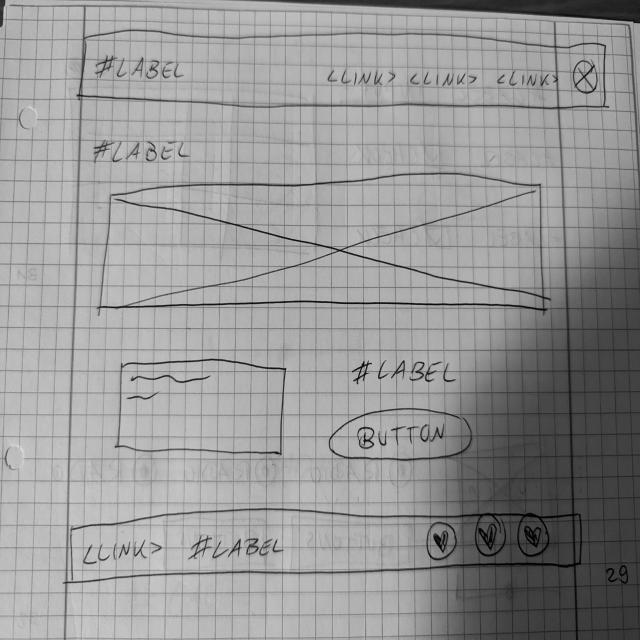 #LABEL <LINK> <LINK> <LINK>
#LABEL
#LABEL
BUTTON
<LINK> #LABEL
29